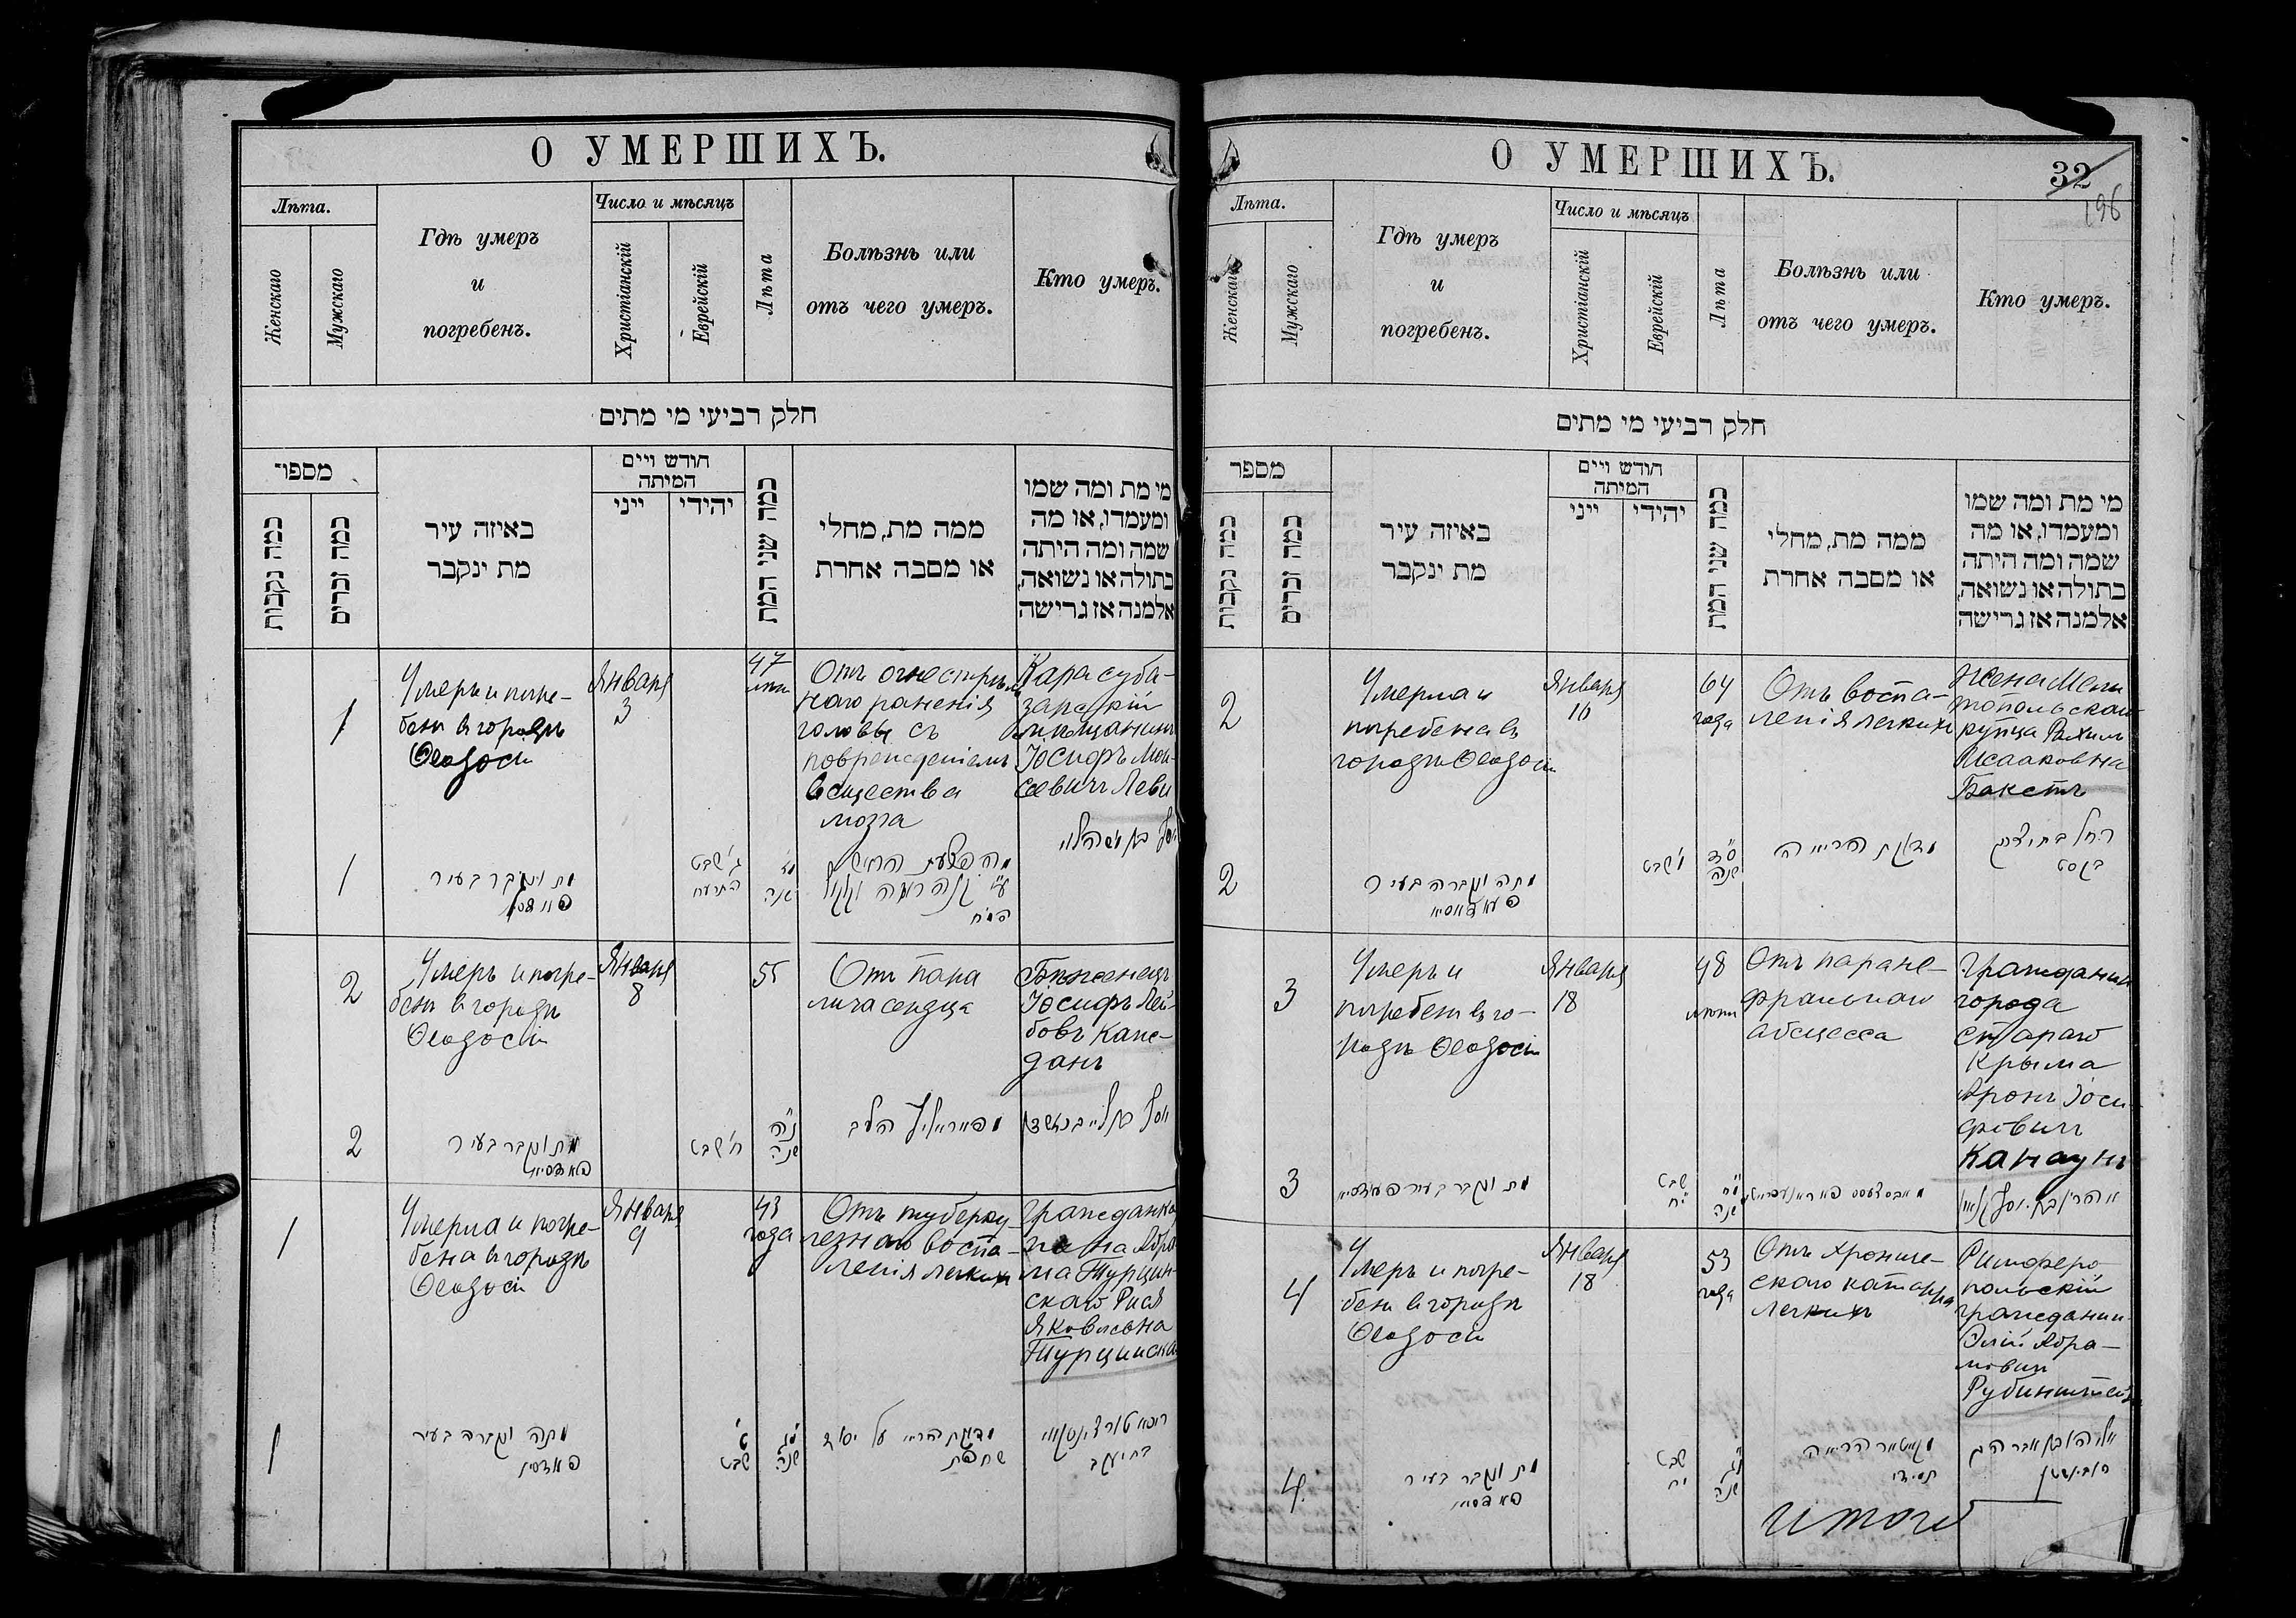 О УМЕРШИХЪ.
Лѣта.
Женскаго
Мужскаго
Гдѣ умеръ
и
погребенъ.
Число и мѣсяцъ
Христіанскій
Еврейскій
Лѣта
Болѣзнь или
отъ чего умеръ.
Кто умеръ.
חלק רביעי מי מתים
מספר
כמה נקבות
כמה זכרים
באיזה עיר
מת ינקבר
חודש ויים
המיתה
ייני
יהידי
כמה שני המת
ממה מת, מחלי
או מסבה אחרת
מי מת ומה שמו
ומעמדו, או מה
שמה ומה היתה
בתולה או נשואה,
אלמנה אז גרישה
1
Умеръ и погре-
бенъ въ городѣ
Ѳеодосіи
Января
3
47
лѣтъ
Отъ огнестрѣль
наго раненія
головы съ
поврежденіемъ
вещества
мозга
Карасуба-
зарскій
мѣщанинъ
Іосифъ Мои-
сеевичъ Леви
1
מת ונקבר בעיר
ג' שבט
התרעח
2
Умеръ и погре-
бенъ въ городѣ
Ѳеодосіи
Января
8
55
Отъ пара
лича сердца
Бѣженецъ
Іосифъ Лей-
бовъ
2
מת ונקבר בעיר
ח' שבט
נ"ה
שנה
1
Умерла и погре-
бена въ городѣ
Ѳеодосіи
Января
9
43
года
Отъ туберку-
лезнаго воспа-
ленія легкихъ
Гражданка
жена Абра
ма Турцин-
скаго Рися
Яковлевна
Турцинска
1
מתה ונקברה בעיר
ט'
שבט
מ"ג
שנה
О УМЕРШИХЪ.
32
196
Лѣта.
Женскаго
Мужскаго
Гдѣ умеръ
и
погребенъ.
Число и мѣсяцъ
Христіанскій
Еврейскій
Лѣта
Болѣзнь или
отъ чего умеръ.
Кто умеръ.
חלק רביעי מי מתים
מספר
כמה נקבות
כמה זכרים
באיזה עיר
מת ינקבר
חודש ויים
המיתה
ייני
יהידי
כמה שני המת
ממה מת, מחלי
או מסבה אחרת
מי מת ומה שמו
ומעמדו, או מה
שמה ומה היתה
בתולה או נשואה,
אלמנה אז גרישה
2
Умерла и
погребена въ
городѣ Ѳеодосіи
Января
64
года
Отъ воспа-
ленія легкихъ
Жена Мели
топольскаго
купца Рахиль
Исааковна
Бакстъ
2
מתה ונקברה בעיר
שבט
ס"ד
שנה
מדלקת הריאה
רחל בת יצחק
בקסט
3
Умеръ и
погребенъ въ го-
родѣ Ѳеодосіи
Января
18
48
лѣтъ
Отъ паране-
фральнаго
абсцесса
Гражданинъ
города
Стараго
Крыма
Аронъ Іоси-
фовичъ
3
מת ונקבר בעיר
שבט
י"ח
מ"ח
שנה
4
Умеръ и погре-
бенъ въ городѣ
Ѳеодосіи
Января
18
53
года
Отъ хрониче-
скаго катарра
легкихъ
Симферо
польскій
гражданинъ
Элій Абра-
мовичъ
Рубинштейнъ
4
מת ונקבר בעיר
שבט
יח
נ"ג
שנה
אליהו בן אברהם
רובינשטיין
Итого